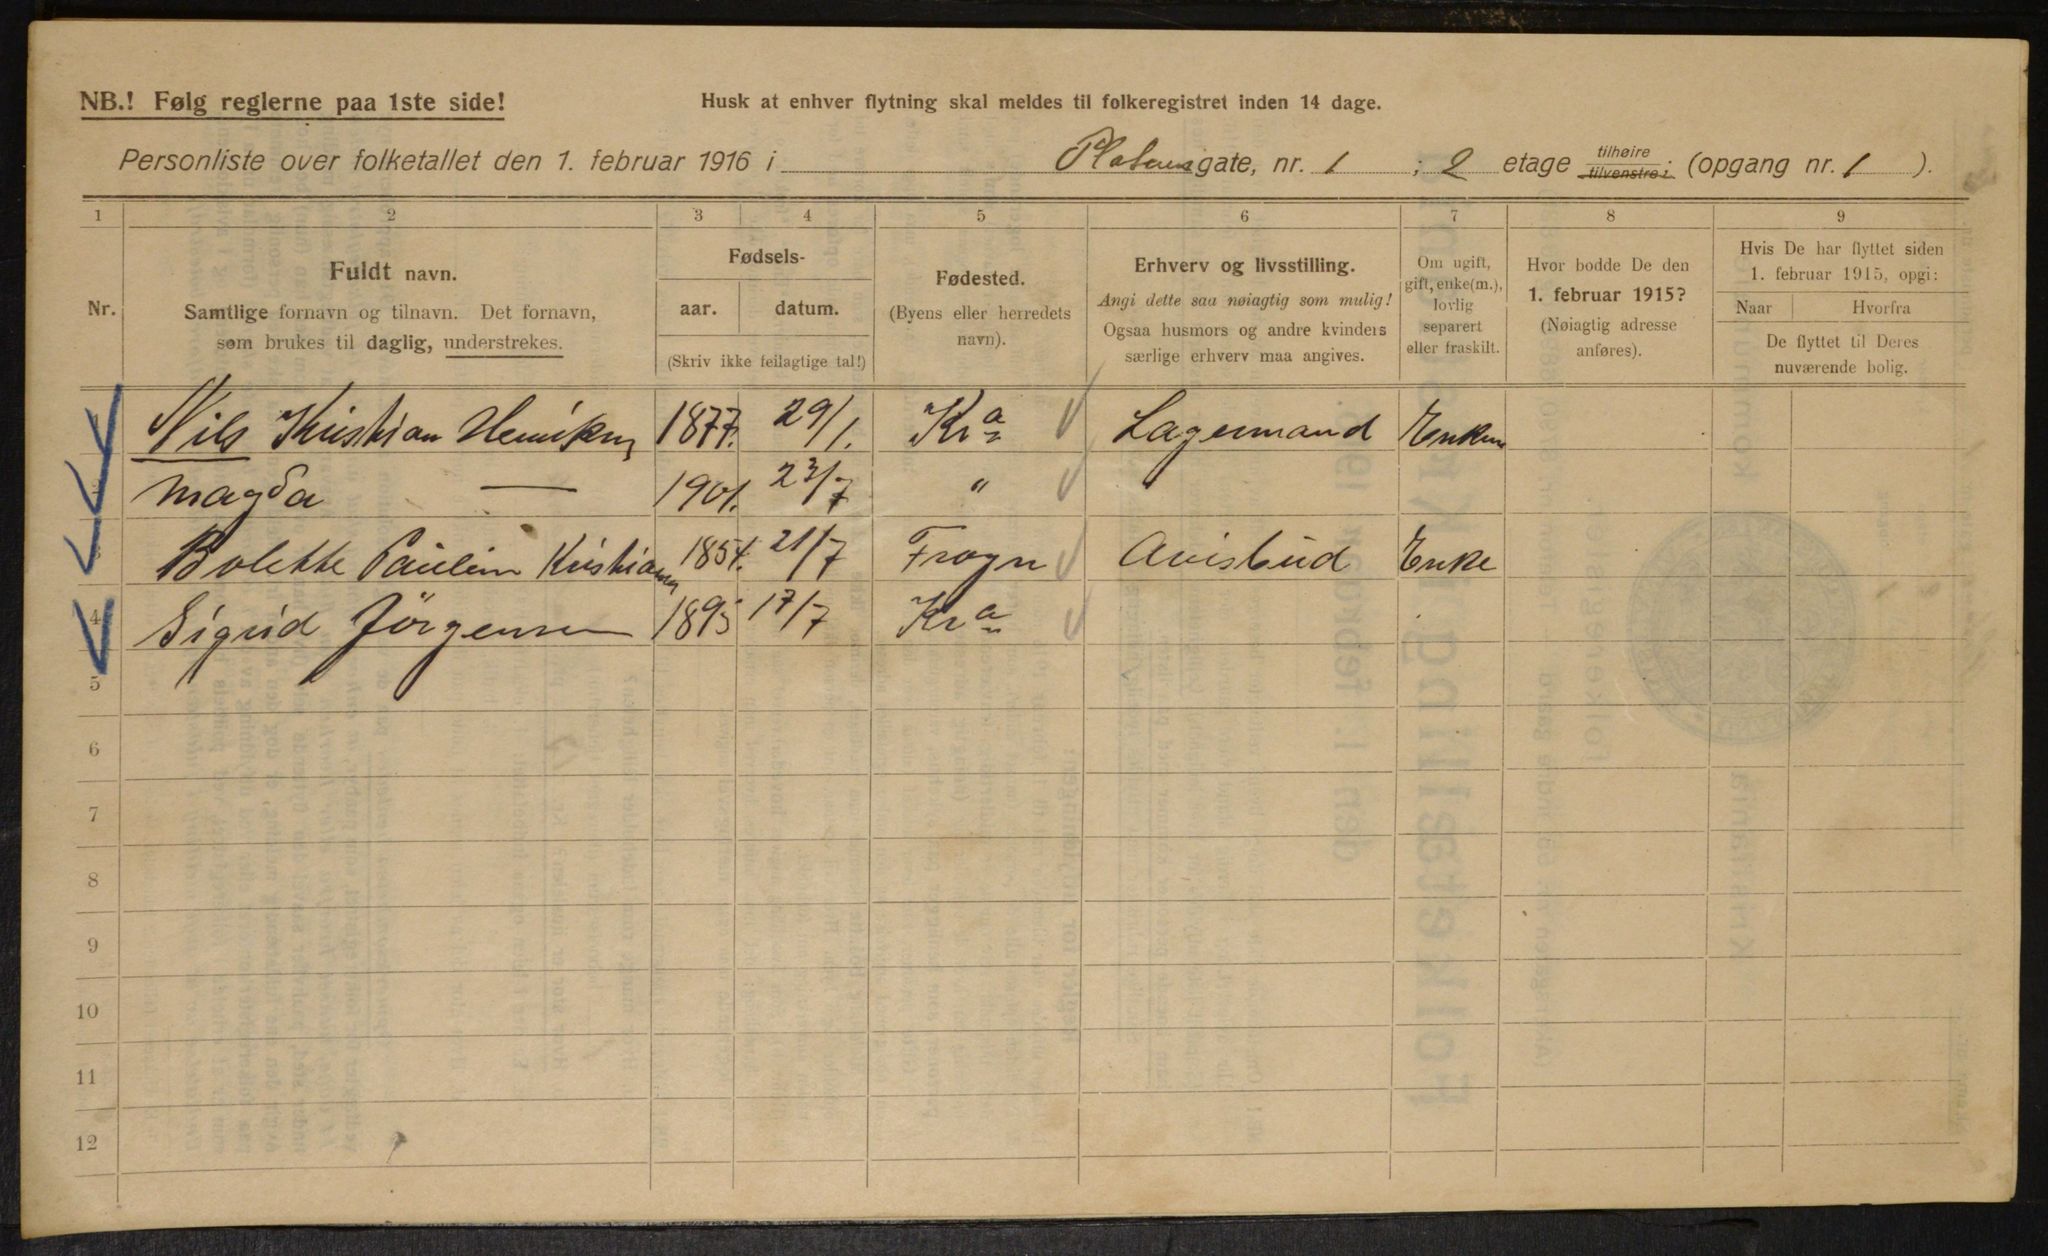 NB.! Følg reglerne paa 1ste side!
Husk at enhver flytning skal meldes til folkeregistret inden 14 dage.
Personliste over folketallet den 1. februar 1916 i Platousgate, nr. 1 ; 2 etage tilhøire tilvenstre i (opgang nr. 1 ).
1 2 3 4 5 6 7 8 9
Nr.
Fuldt navn.
Samtlige fornavn og tilnavn. Det fornavn,
som brukes til daglig, understrekes.
Fødsels-
aar. datum.
(Skriv ikke feilagtige tal!)
Fødested.
(Byens eller herredets
navn).
Erhverv og livsstilling.
Angi dette saa nøiagtig som mulig!
Ogsaa husmors og andre kvinders
særlige erhverv maa angives.
Om ugift,
gift, enke(m.),
lovlig
separert
eller fraskilt.
Hvor bodde De den
1. februar 1915?
(Nøiagtig adresse
anføres).
Hvis De har flyttet siden
1. februar 1915, opgi:
Naar Hvorfra
De flyttet til Deres
nuværende bolig.
Nils Kristian Henriksen 1877. 29/1. Kra Lagermand Enkem
Magda — 1901. 23/7 "
3 Bolette Paulin Kristiansen 1854. 21/7 Frogn Avisbud Enke
4 Sigrid Jörgensen 1895 17/7 Kra
5
6
7
8
9
10
11
12